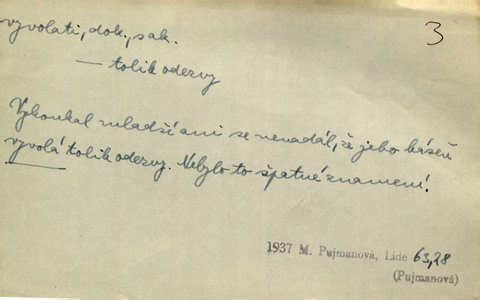 vyvolati, dok., sak.
3
— tolik odezvy
Vykoukal mladší ani se nenadál, že jeho báseň
vyvolá tolik odezvy. Nebylo to špatné znamení.
1937 M. Pujmanová, Lidé 63,28
(Pujmanová)